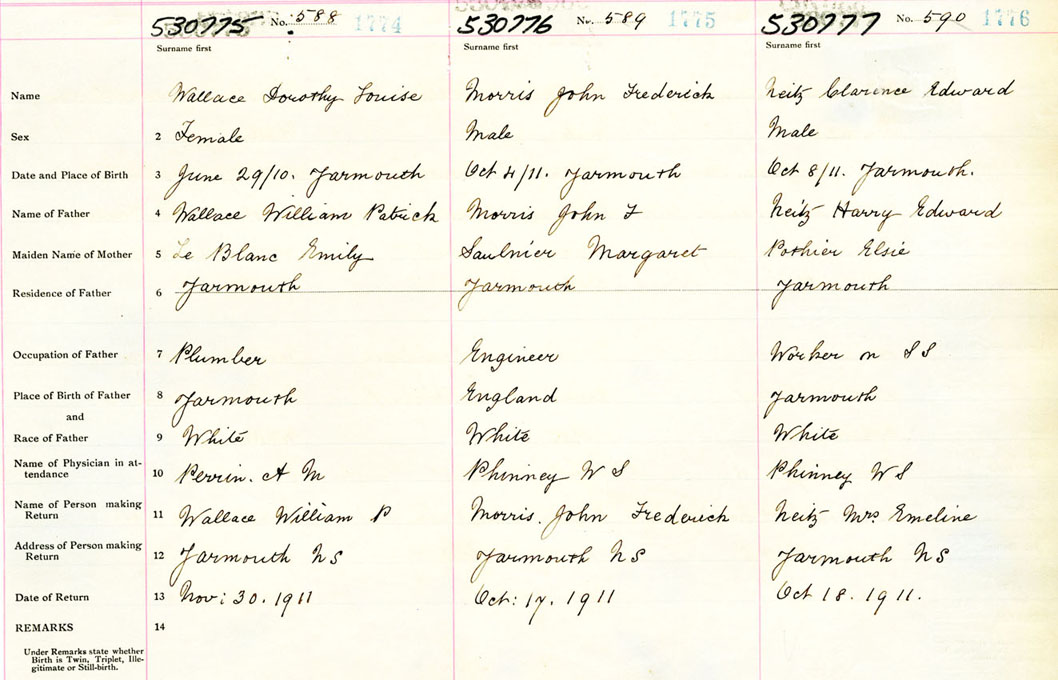 530775 No. 588 1774 530776 No. 589 1775 530777 No. 590 1776
Surname first Surname first Surname first
Name Wallace Dorothy Louise Morris John Frederick Neitz Clarence Edward
Sex 2 Female Male Male
Date and Place of Birth 3 June 29/10. Yarmouth Oct 4/11. Yarmouth Oct 8/11. Yarmouth.
Name of Father 4 Wallace William Patrick Morris John F Neitz Harry Edward
Maiden Name of Mother 5 Le Blanc Emily Saulnier Margaret Pothier Elsie
Residence of Father 6 Yarmouth Yarmouth Yarmouth
Occupation of Father 7 Plumber Engineer Worker on SS
Place of Birth of Father 8 Yarmouth England Yarmouth
and
Race of Father 9 White White White
Name of Physician in at-
tendance 10 Perrin. A M Phinney W S Phinney W S
Name of Person making
Return 11 Wallace William P Morris. John Frederick Neitz Mrs Emeline
Address of Person making
Return 12 Yarmouth NS Yarmouth NS Yarmouth NS
Date of Return 13 Nov: 30. 1911 Oct: 17. 1911 Oct 18. 1911.
REMARKS 14
Under Remarks state whether
Birth is Twin, Triplet, Ille-
gitimate or Still-birth.